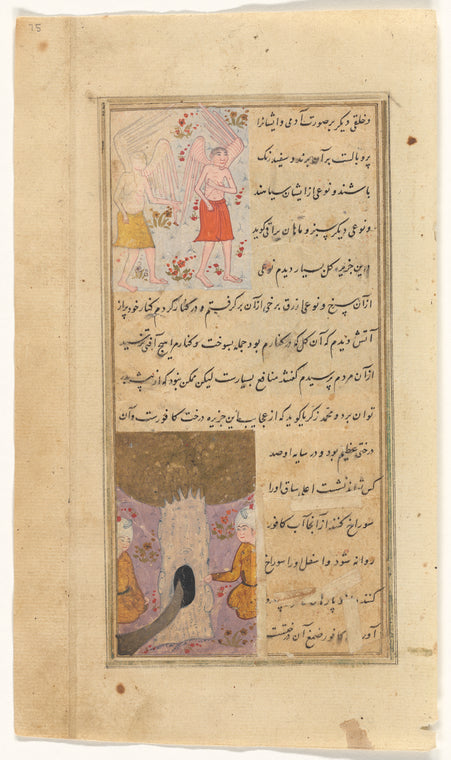 75
و خلقی دیگر بر صورت آدمی و ایشانرا
پر و بالست بر آن پرند و سفید رنک
باشند و نوعی از ایشان سیاهند
و نوعی دیگر سبز و ماهان براقی کوید
این جزیره کل بسیار دیدم نوعی
از آن سرخ و نوعی ازرق برخی از آن بر گرفتم و در کنار کردم کنار خود پر از
آتش دیدم که آن کل که در کنارم بود جمله بسوخت و کنار مرا هیچ آفتی نرسید
از آن مردم پرسیدم کفتند منافع بسیارست لیکن ممکن نبود که از بیشه بر
توان برد و محمد زکریا کوید که از عجایب این جزیره درخت کافورست و آن
درختی عظیم بود و در سایه او صد
کس تواند نشست اعلی ساق او را
سوراخ کنند از آنجا آب کافور
روانه شود و اسفل او را سوراخ
کنند پارها
آور کافور صمغ آن درختست